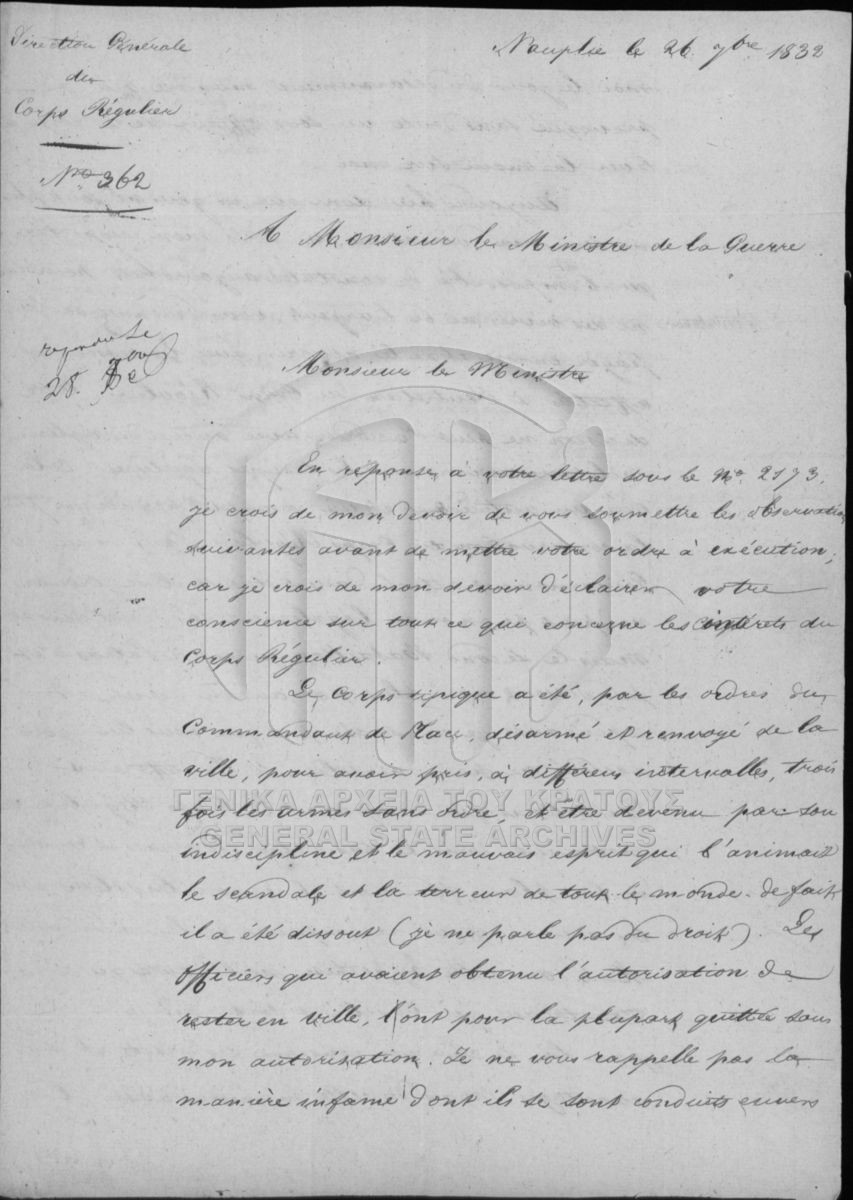 Direction Générale
du
Corps Régulier
No 362
Nauplie le 26 7bre 1832
A Monsieur le Ministre de la Guerre
28.
Monsieur le Ministre
En reponse à votre lettre sous le No. 2173.
je crois de mon devoir de vous soumettre les observations
suivantes avant de mettre votre ordre à exécution;
car je crois de mon devoir d'éclairer votre
conscience sur tout ce qui concerne les intérêts du
Corps Régulier.
Le Corps tipique a été, par les ordres du
Commandant de Place, désarmé et renvoyé de la
ville, pour avoir pris, à différens intervalles, trois
fois les armes sans ordre, et être devenu par son
indiscipline et le mauvais esprit qui l'animait
le scandale et la terreur de tout le monde. de fait
il a été dissout (je ne parle pas du droit). Les
officiers qui avaient obtenu l'autorisation de
rester en ville, l'ont pour la plupart quittée sans
mon autorisation. Je ne vous rappelle pas la
manière infame dont ils se sont conduits envers
ΓΕΝΙΚΑ ΑΡΧΕΙΑ ΤΟΥ ΚΡΑΤΟΥΣ
GENERAL STATE ARCHIVES